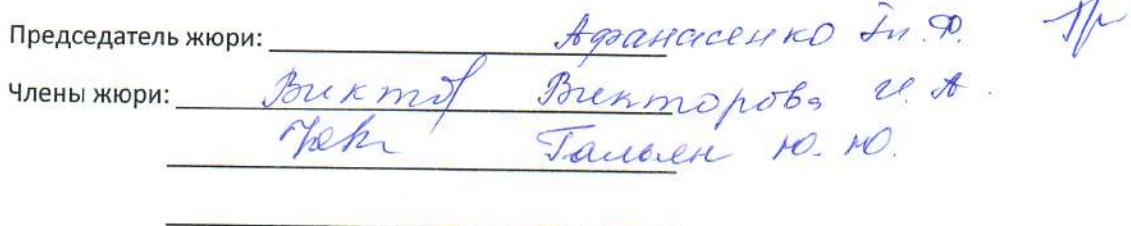 Председатель жюри: Афанасенко Т.Ф.
Члены жюри: Викторова И.А.
Гальян Ю.Ю.